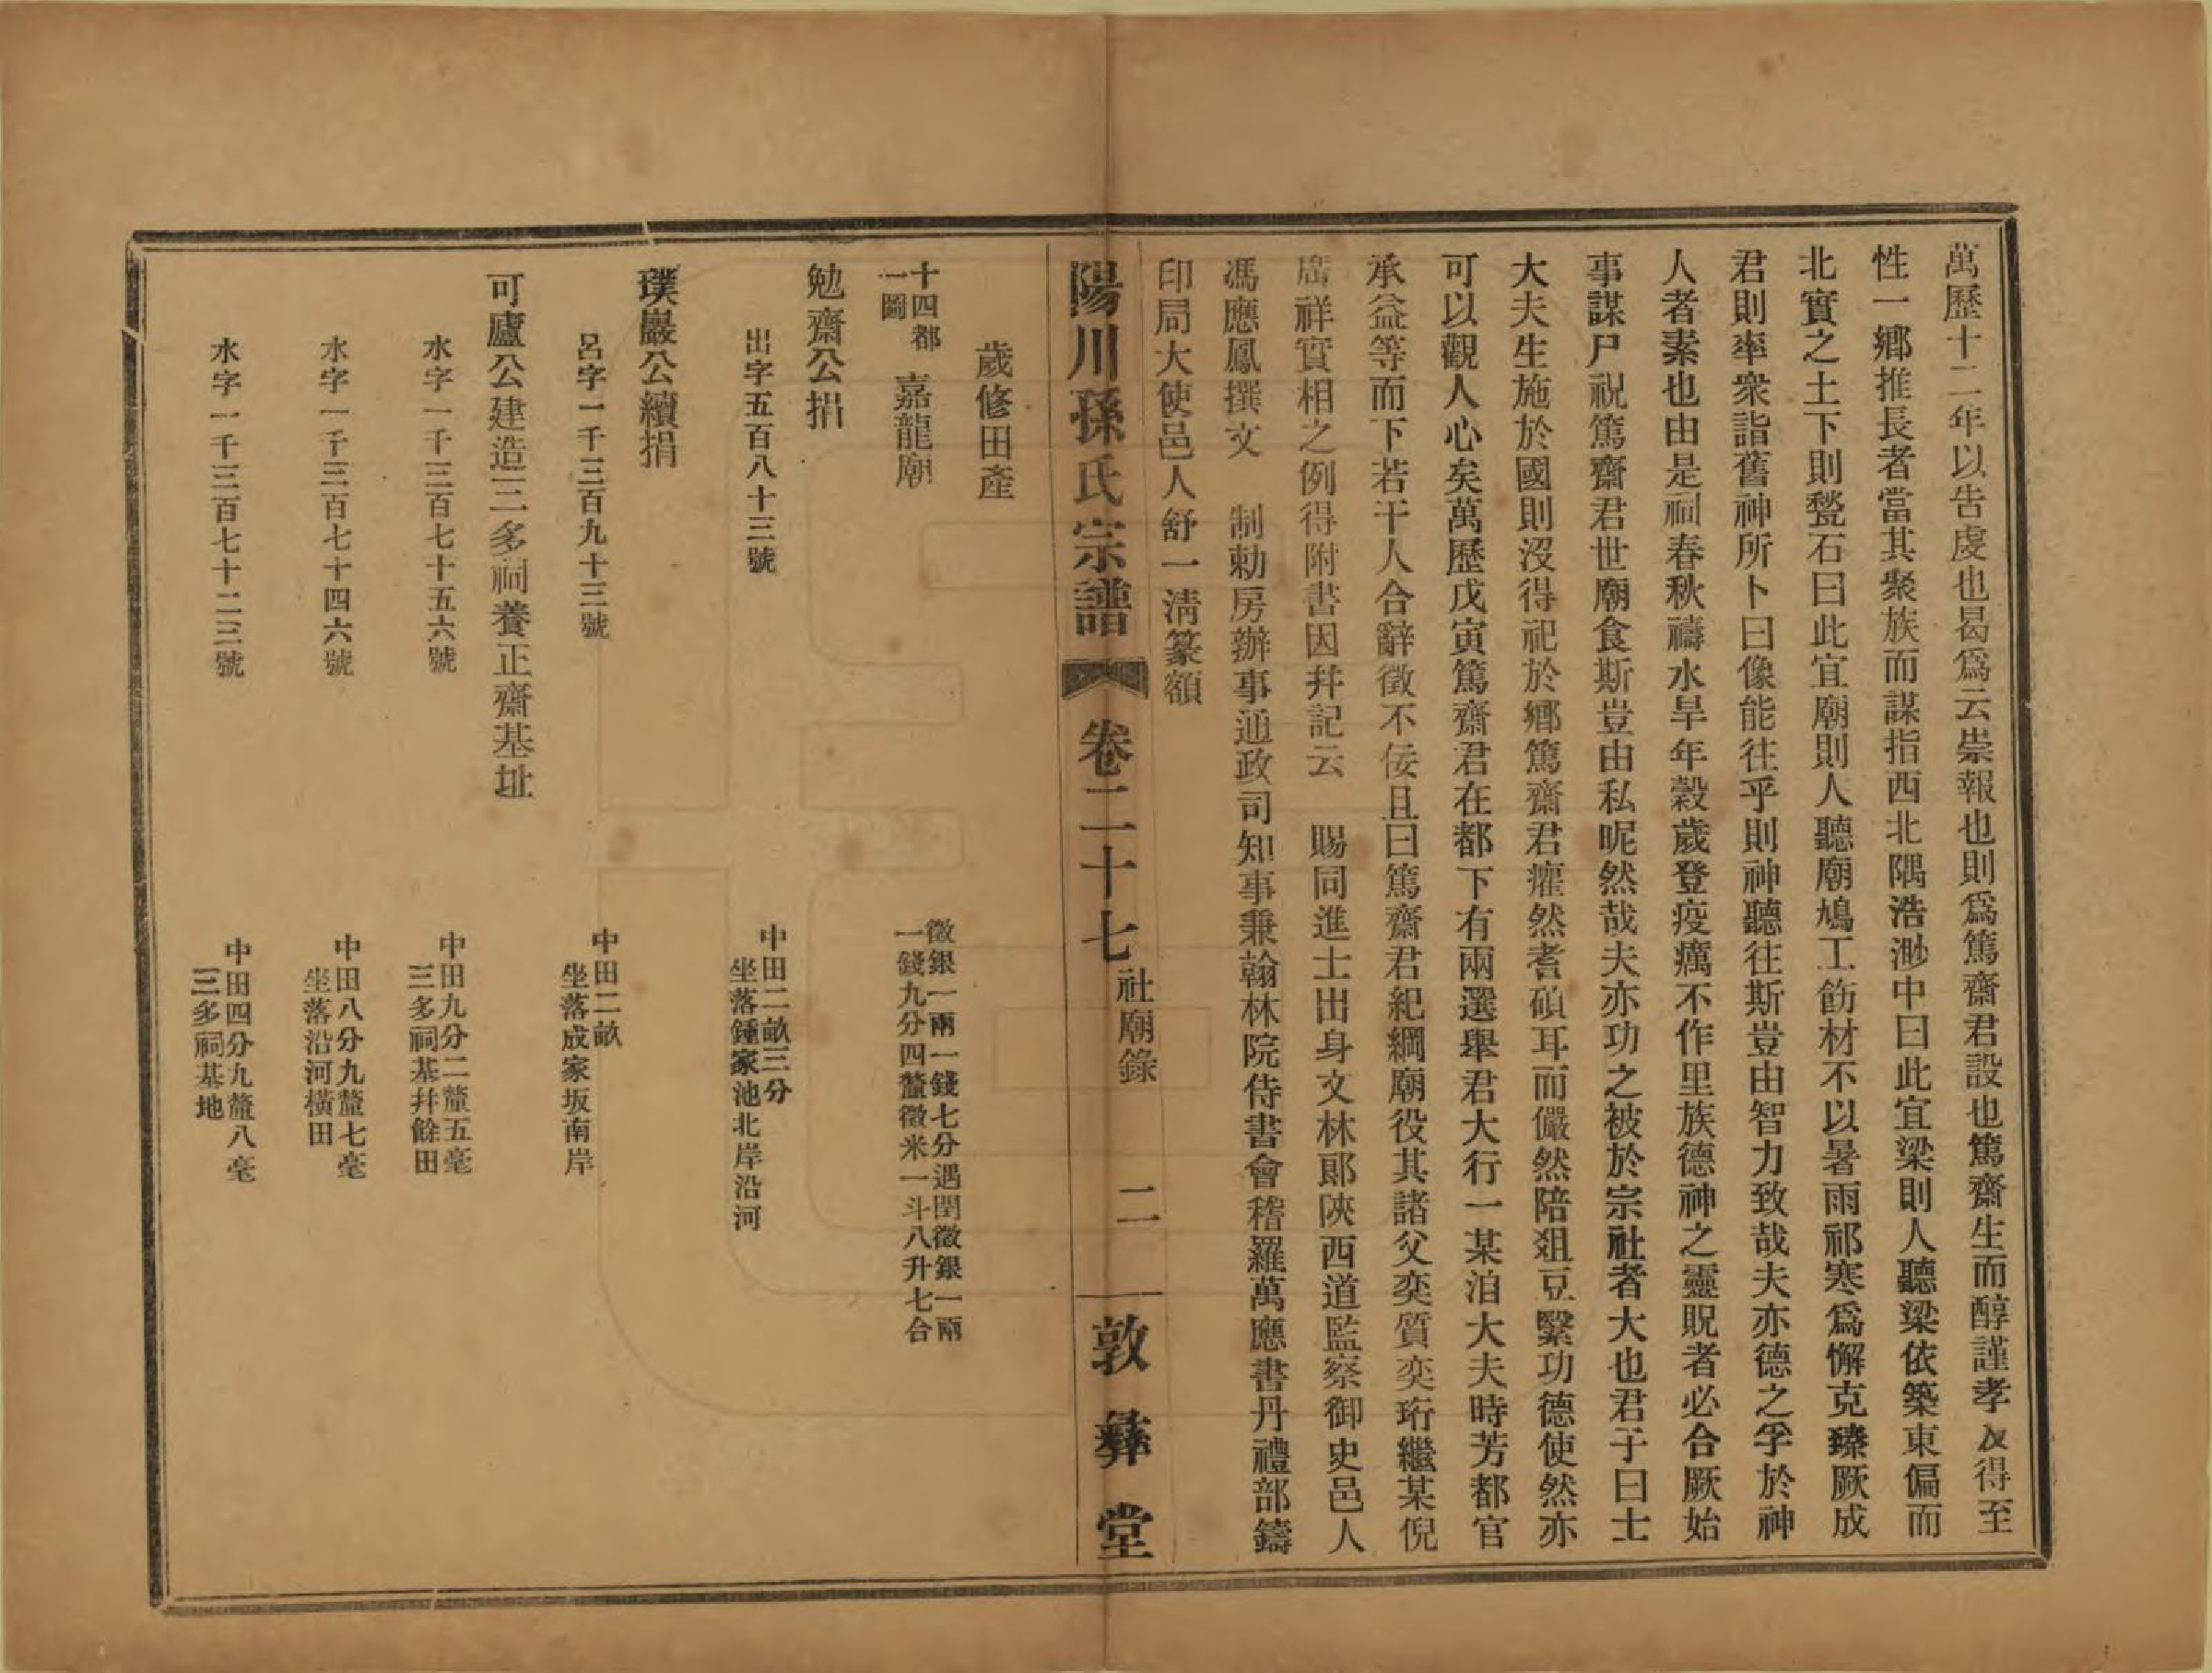 萬歷十二年以告虔也曷爲云崇報也則爲篤齋君設也篤齋生而醇謹孝友得至
性一鄉推長者當其聚族而謀指西北隅浩渺中曰此宜梁則人聽梁依築東偏而
北實之土下則甃石曰此宜廟則人聽廟鳩工飭材不以暑雨祁寒爲懈克臻厥成
君則率衆詣舊神所卜曰像能往乎則神聽往斯豈由智力致哉夫亦德之孚於神
人者素也由是祠春秋禱水旱年穀歲登疫癘不作里族德神之靈貺者必合厥始
事謀尸祝篤齋君世廟食斯豈由私昵然哉夫亦功之被於宗社者大也君子曰士
大夫生施於國則沒得祀於鄉篤齋君癯然耆碩耳而儼然陪爼豆繄功德使然亦
可以觀人心矣萬歷戊寅篤齋君在都下有兩選舉君大行一某洎大夫時芳都官
承益等而下若干人合辭徵不佞且曰篤齋君紀綱廟役其諸父奕質奕珩繼某倪
庴祥實相之例得附書因幷記云　賜同進士出身文林郎陝西道監察御史邑人
馮應鳳撰文　制勅房辦事通政司知事兼翰林院侍書會稽羅萬應書丹禮部鑄
印局大使邑人舒一淸篆額
陽川孫氏宗譜　卷二十七　社廟錄　二　敦彝堂
歲修田產
十四都一圖　嘉龍廟　徵銀一兩一錢七分遇閏徵銀一兩一錢九分四釐徵米一斗八升七合
勉齋公捐
出字五百八十三號　中田二畝三分坐落鍾家池北岸沿河
璞巖公續捐
呂字一千三百九十三號　中田二畝坐落成家坂南岸
可廬公建造三多祠養正齋基址
水字一千三百七十五六號　中田九分二釐五毫三多祠基幷餘田
水字一千三百七十四六號　中田八分九釐七毫坐落沿河橫田
水字一千三百七十二三號　中田四分九釐八毫三多祠基地